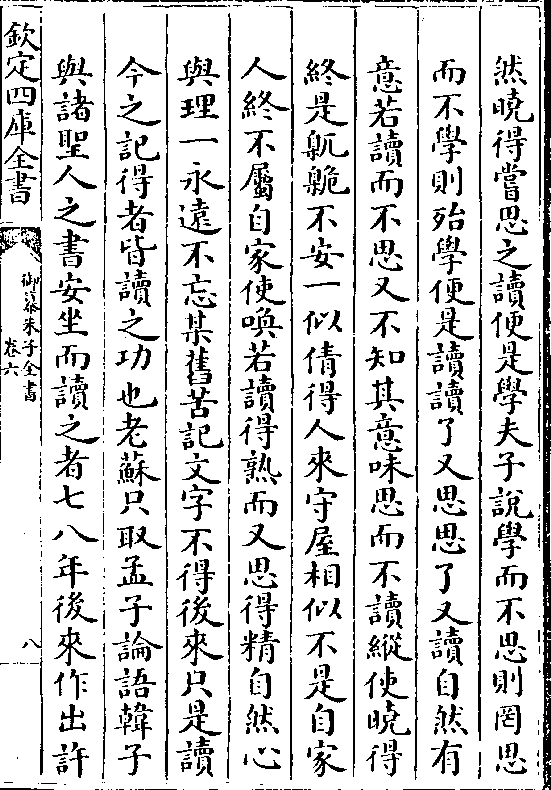 然曉得嘗思之讀便是學夫子說學而不思則罔思
而不學則殆學便是讀讀了又思思了又讀自然有
意若讀而不思又不知其意味思而不讀縱使曉得
終是臲卼不安一似倩得人來守屋相似不是自家
人終不屬自家使喚若讀得熟而又思得精自然心
與理一永遠不忘某舊苦記文字不得後來只是讀
今之記得者皆讀之功也老蘇只取孟子論語韓子
與諸聖人之書安坐而讀之者七八年後來作出許
欽定四庫全書
御纂朱子全書
卷六
八